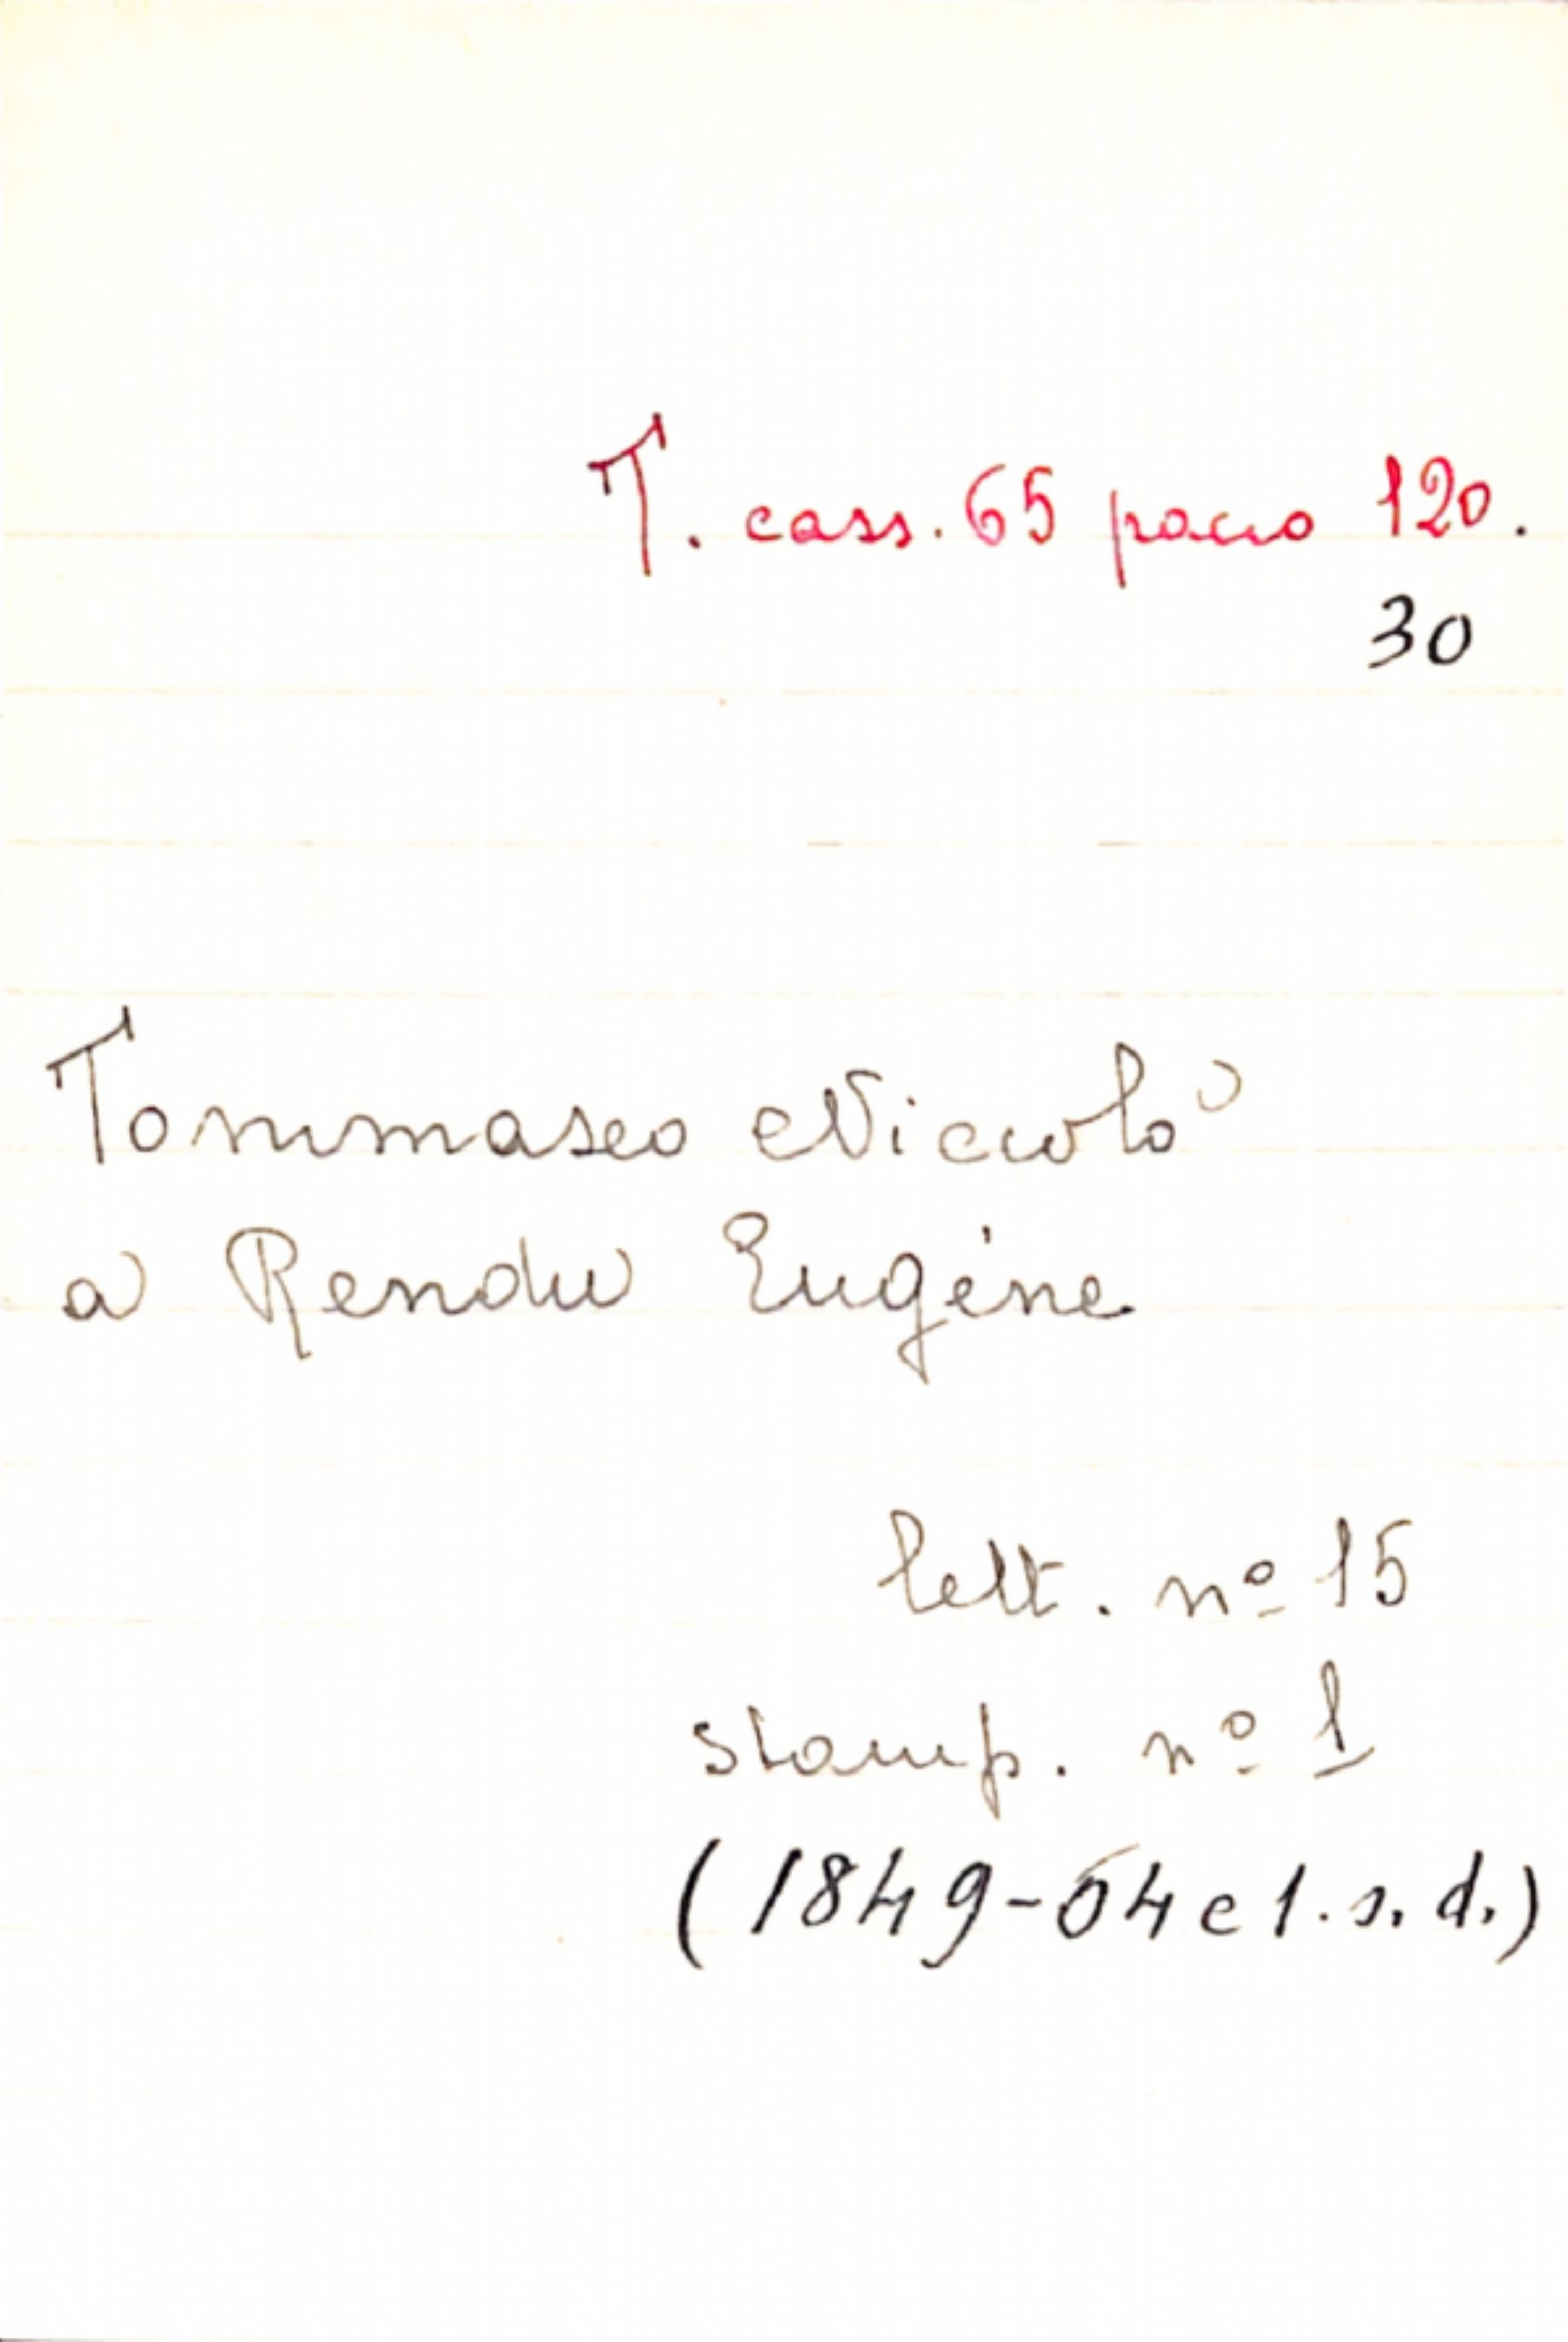 T. cass. 65 pacco 120.
30
Tommaseo Niccolò
a Rendu Eugéne
lett. nº 15
stamp. nº 1
(1849-54 e 1. s. d.)